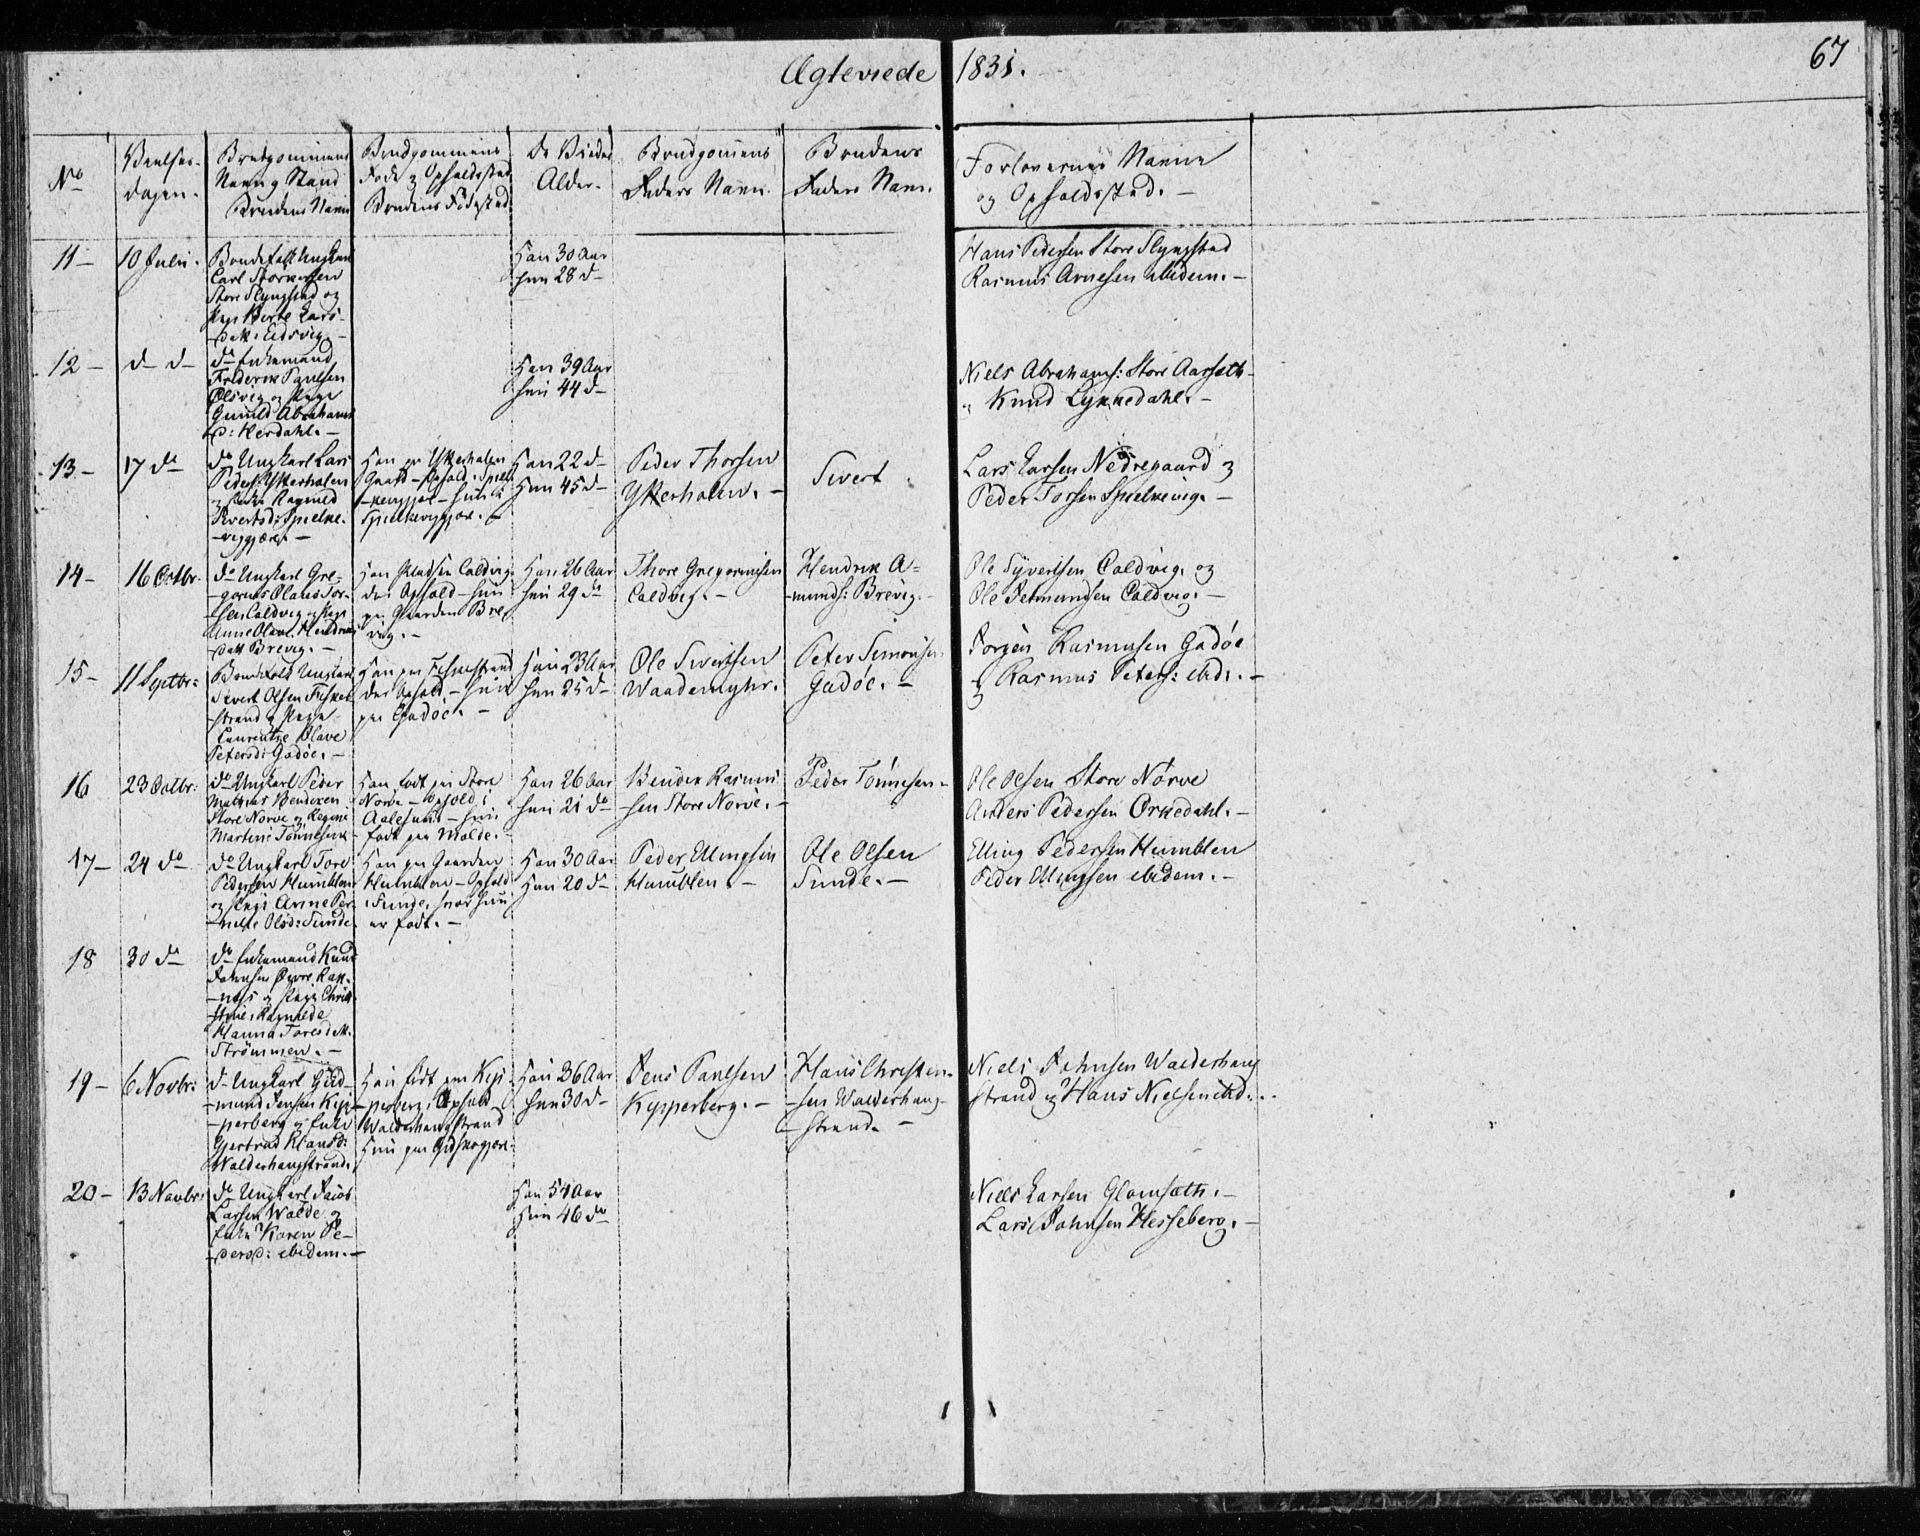 Ægteviede 1831.
67
No
Vielses-
dagen.
Brudgommens
Navn og Stand
Brudens Navn
Brudgommens
Føde og Opholdssted
Brudens Fødested
De Viedes
Alder.
Brudgomens
Faders Navn.
Brudens
Faders Navn.
Forlovernes Navne
og Opholdssted. -
11 -
10 Julii.
Bondefolk Ungkarl
Carl
Store Slyngstad og
Pige Berte Lars-
datt. Eidsvig. -
Han 30 Aar
hun 28 d -
Hans Pedersen Store Slyngstad
Rasmus Arnesen ibidem. -
12 -
d - d -
do Enkemand
Frederik Paulsen
Ølsvig og Pige
Gunild Abrahams
d: Herdahl. -
Han 39 Aar
hun 44 d -
Niels Abrahams: Store Aarsæth -
" Knud Lynnedahl. -
13 -
17 do
do Ungkarl Lars
Peders. Ytterholen
og Enke Ragnild
Sivertsd: Spielke-
viggjære. -
Han paa Ytterholen
Gaard - Ophold i Spiel-
kevigjær - hun i
Spielkeviggjær. -
Han 22 d -
Hun 45 d -
Peder Thorsen
Ytterholen. -
Sivert
Lars Larsen Nedregaard og
Peder Torsen Spielkevig. -
14 -
16 Octbr.
do Ungkarl Gre-
gorius Olaus Tor-
sen Caldvig og Pige
Anne Olave Hendriks
datt Brevig. -
Han Caldvig
der Ophold - hun
paa Gaarden Bre
vig. -
Han 26 Aar
hun 29 do
Thore Gregoriusen
Caldvig. -
Hendrik A-
munds: Brevig. -
Ole Syvertsen Caldvig. og
Ole Caldvig. -
15 -
11 Septbr:
Bondefolk Ungkarl
Sivert Olsen Fisker-
strand og Pige
Laurentze Olave
Petersd: Gadøe. -
Han paa Fiskerstrand
der Ophold - hun
paa Gadøe. -
Han 23 Aar
hun 25 d -
Ole Sivertsen
Waademyhr.
Peter Simonsen
Gadøe. -
Jørgen Rasmusen Gadøe
og Rasmus Peters: ibid:. -
16
23 Octbr:
do Ungkarl Peder
Mathias Bendixen
Store Nørve og Regine
Martine Tønnesen
Han født paa Store
Nørve - Ophold i
Aalesund - hun
født paa Molde. -
Han 26 Aar
hun 21 do
Bendix Rasmu-
sen Store Nørve. -
Peder Tønnesen -
Ole Olsen Store Nørve
Anders Pedersen Orkedahl. -
17 -
24 do
do Ungkarl Tore
Pedersen Humblen
og Pige Anne Per-
nelle Olsd: Sunde.
Han paa Gaarden
Humblen - Ophold
i Sunde, hvor hun
er født. -
Han 30 Aar
Hun 20 d -
Peder Ellingsen
Humblen. -
Ole Olsen
Sunde. -
Elling Pedersen Humblen
Peder Ellingsen ibidem. -
18
30 do
do Enkemand Knud
Johnsen Øvre Ram-
næs og Pige Chri-
stine Ragnilde
Hanna Toresdatt.
Strømmen. -
19 -
6 Novbr:
do Ungkarl Gud-
mund Jensen Kip-
perberg og Enke
Gjertrud Hansd:
Walderhaugstrand.
Han født paa Kip
perberg, Ophold
Walderhaugstrand
Hun paa Gidskegjær.
Han 36 Aar
hun 30 d -
Jens Paulsen
Kipperberg. -
Hans Christen-
sen Walderhaug-
strand. -
Niels Johnsen Walderhaug
strand og Hans Nielsen ibid. . .
20 -
13 Novbr:
do Ungkarl Jacob
Larsen Walde og
Enke Karen Pe-
dersd: ibidem. -
Han 54 Aar
Hun 46 do
Niels Larsen Glomsæth. -
Lars Johnsen Hesseberg. -